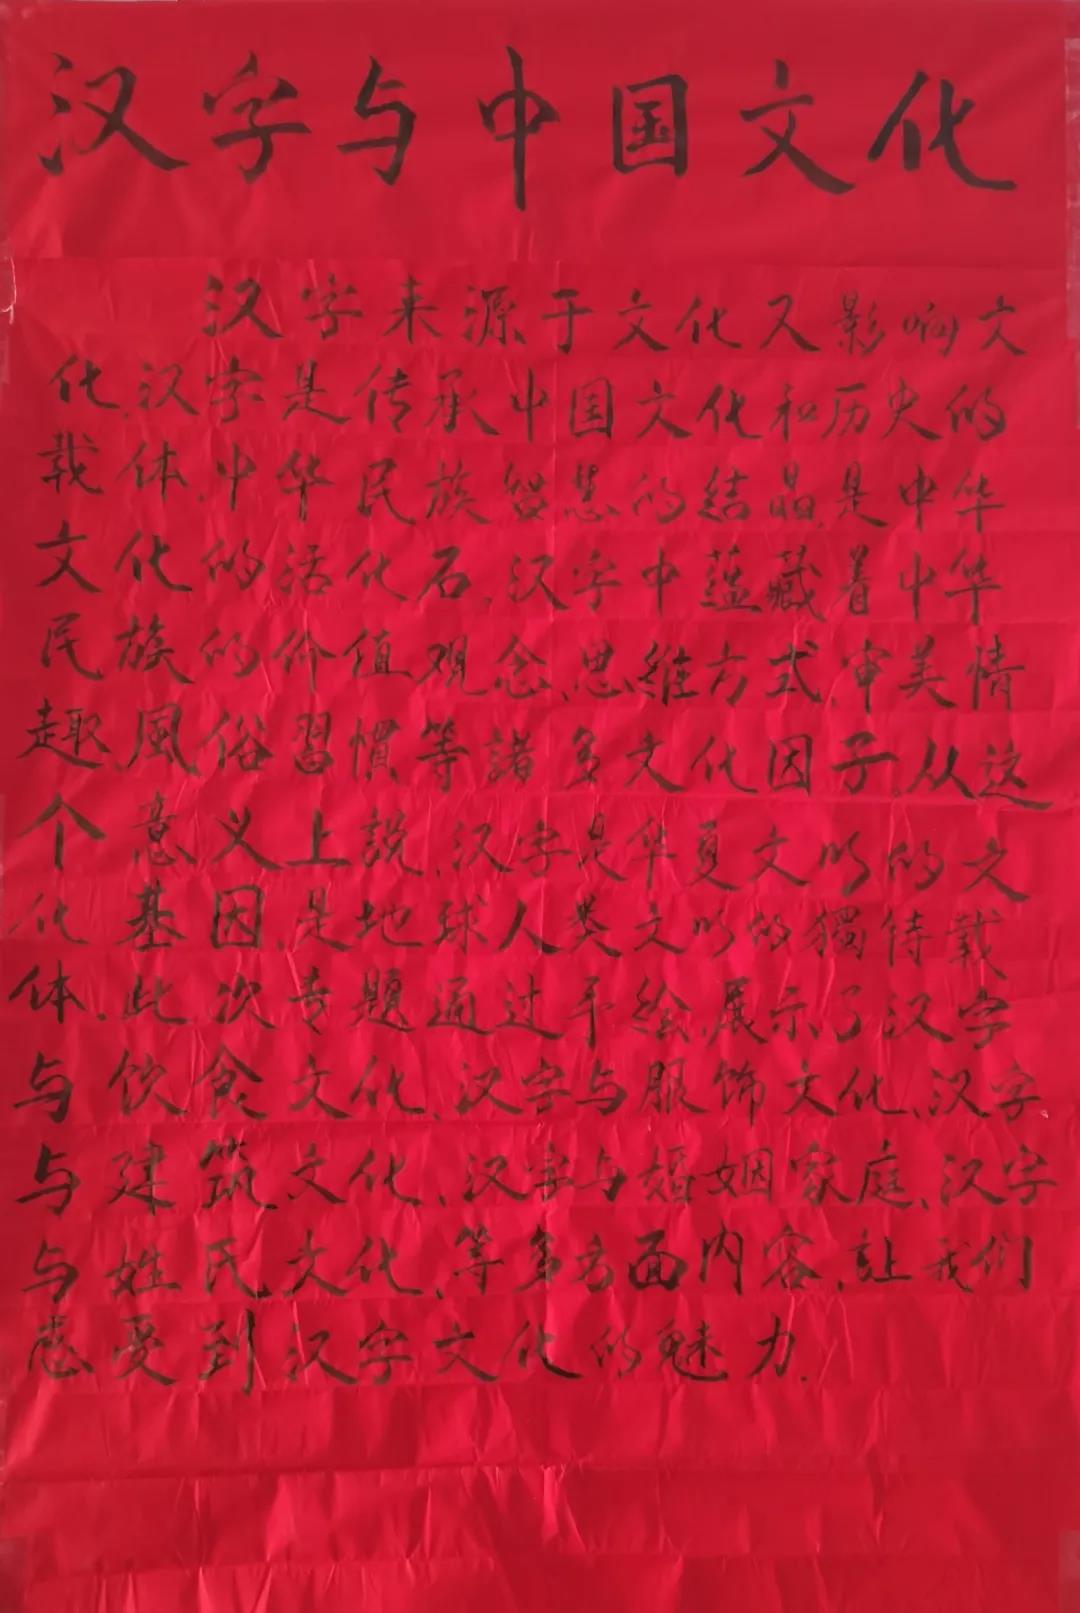 汉字与中国文化
汉字来源于文化又影响文
化,汉字是传承中国文化和历史的
载体,中华民族智慧的结晶,是中华
文化的活化石,汉字中蕴藏着中华
民族的价值观念、思维方式,审美情
趣,風俗習慣等諸多文化因子,从这
个意义上説,汉字是华夏文明的文
化基因,是地球人类文明的獨特载
体,此次专题通过手绘,展示了汉字
与饮食文化,汉字与服饰文化,汉字
与建筑文化,汉字与婚姻家庭,汉字
与姓氏文化,等多方面内容,让我们
感受到汉字文化的魅力.